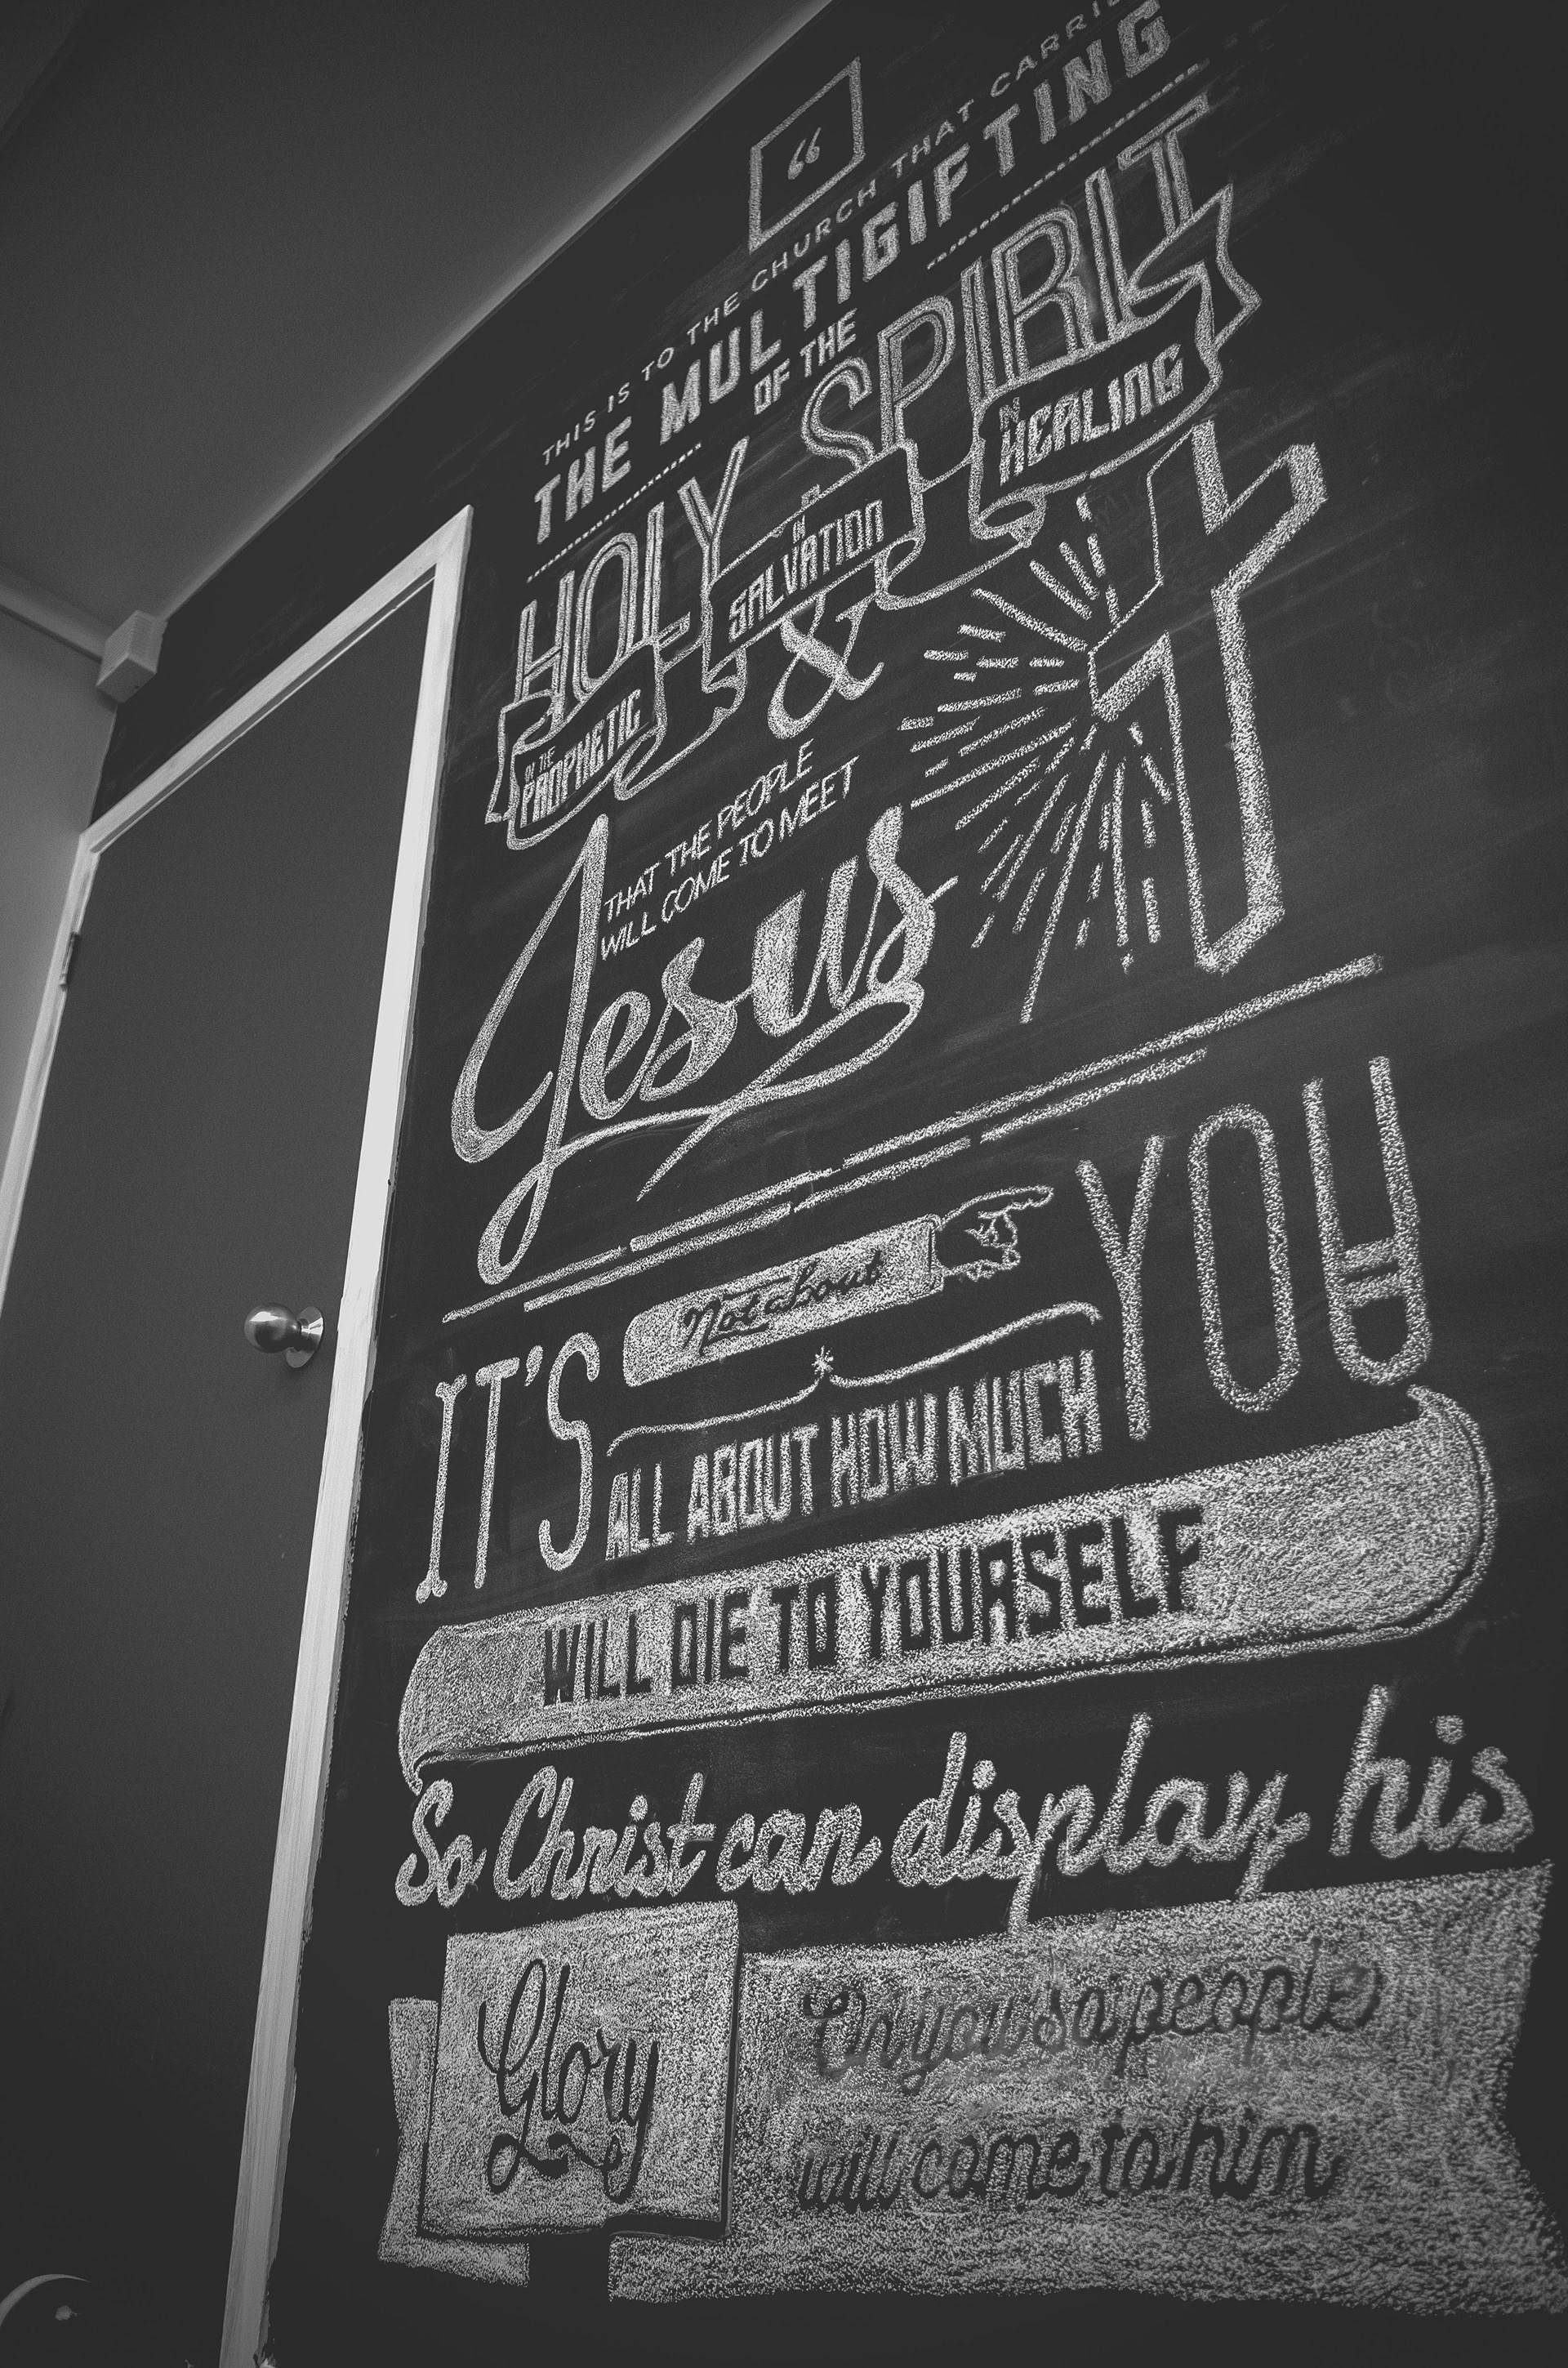 “
THIS IS TO THE CHURCH THAT
THE MULTIGIFTING
OF THE
HOLY SPIRIT
PROPHETIC
IN SALVATION
IN HEALING
&
THAT THE PEOPLE
WILL COME TO MEET
Jesus
IT'S Not about YOU
ALL ABOUT HOW MUCH
WILL DIE TO YOURSELF
So Christ can display his
Glory
On you so people
will come to him